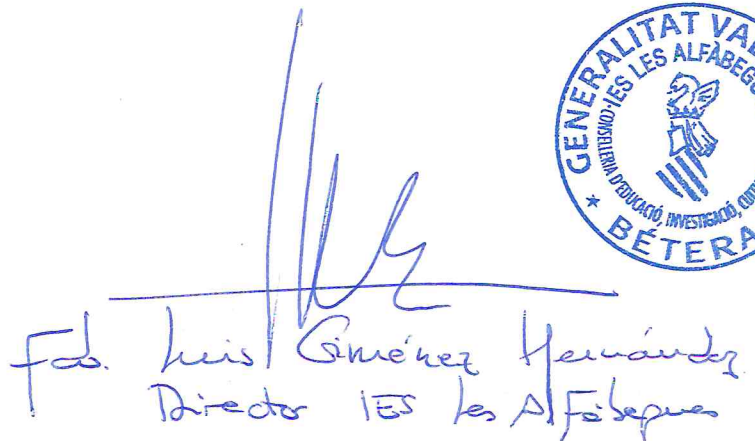 GENERALITAT VAL
IES LES ALFÀBEGU
CONSELLERIA D'EDUCACIÓ, INVESTIGACIÓ, CULT
* BÉTERA
Fdo. Luis Giménez Hernández
Director IES Les Alfàbegues